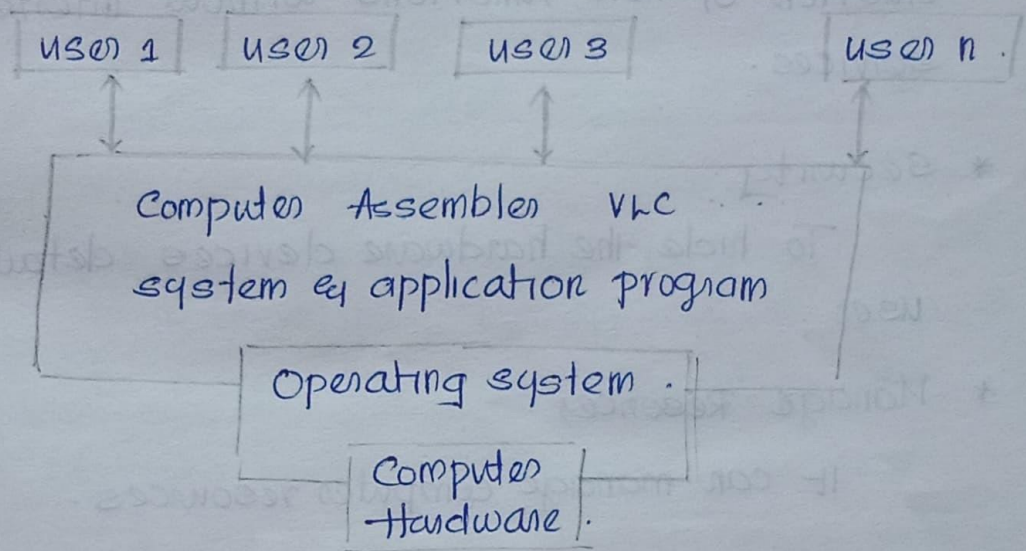 user 1 user 2 user 3 user n.
Computer Assembler VLC ...
system & application program
Operating system.
Computer
Hardware.